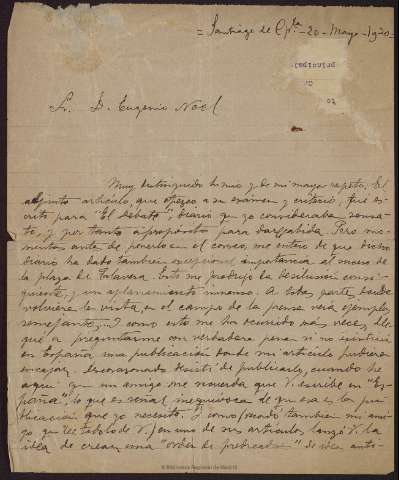 = Santiago de Cpla. - 20 - Mayo - 1920 =
Sr. D. Eugenio Noel
Muy distinguido Sr. mio y de mi mayor respeto: El
adjunto artículo, que ofrezco a su examen y criterio, fué es-
crito para "El Debate", diario que yo consideraba sensa-
to, y por tanto apropósito para dar cabida. Pero mo-
mentos antes de ponerlo en el correo, me entero de que dicho
diario ha dado tambien excepcional importancia al suceso de
la plaza de Talavera. Esto me produjo la desilusión consi-
guiente, y un aplanamiento inmenso. A todas partes donde
volviera la vista, en el campo de la prensa veía ejemplos
semejantes, y como esto me ha ocurrido más veces, lle-
gué a preguntarme con verdadera pena si no existiría
en España una publicación donde mi artículo pudiera
encajar. Descorazonado desistí de publicarlo, cuando he
aquí que un amigo me recuerda que V. escribe en "Es-
paña", lo que es señal inequivoca de que esa es la pu-
blicación que yo necesito. Y como recordó tambien mi ami-
go que en uno de sus artículos lanzó V. la
idea de crear una "orden de predicadores" de idea anti-
© Biblioteca Regional de Madrid